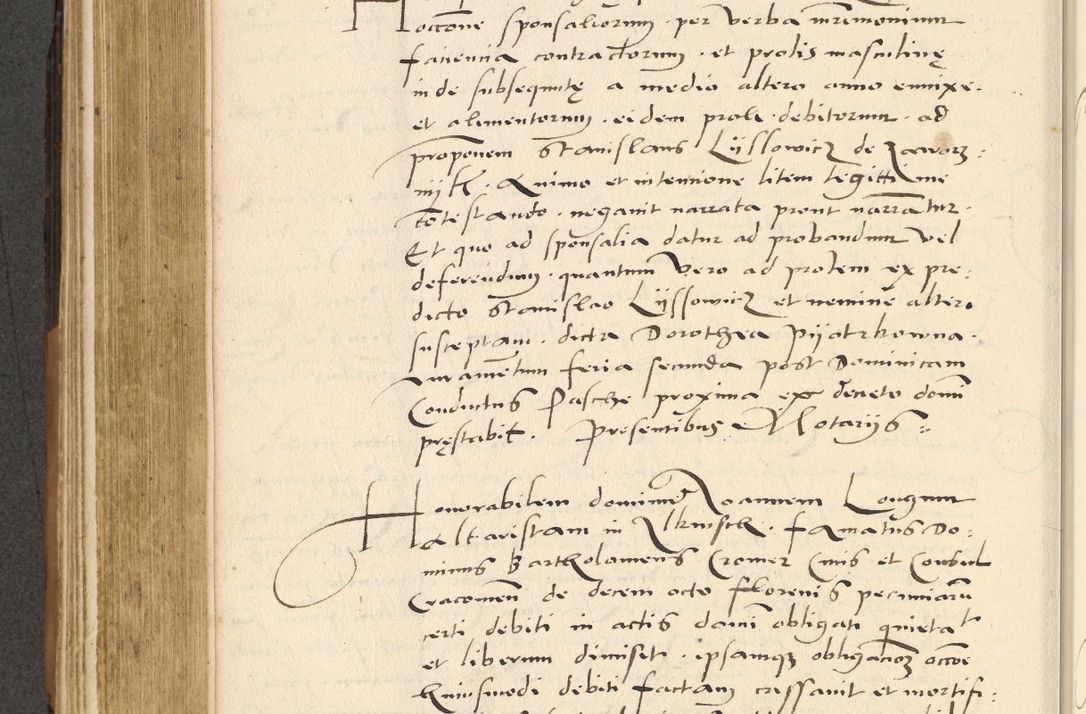 occõne sponsaliorum · per verba mr̃imonium
faciencia contractorum · et prolis masculinę
inde subsequutę a medio altero anno enixe ·
et alimentorum · eidem proli · debitorum · ad
proponem Stanislaus Lyssowicz de Jaworz:
nyk · Animo et intencione litem legitti me
cõtestando · negavit narrata prout narrãtur ·
Et quo ad sponsalia datur ad probandum vel
deferendum · quantum vero ad prolem ex pre:
dicto Stanislao Lyssowicz et nemine altero
susceptam · dicta Dorothea Pyotrkowna ·
Juramentum feria secunda post Dominicam
Conductus Pasche proxima ex decreto domĩ
pręstabit · Presentibus Notariis ::
Honorabilem dominum Joannem Longum
altaristam in Ilkusch · famatus Do:
minus Bartholomeus Cromer Civis et Consul
Cracovieñ de decem octo florenis pecuniarũ
certi debiti in actis domĩ obligati quietat
et liberum dimisit · ipsamque obligacõem occõe
huiusmodi debiti factam cassavit et mortifi: